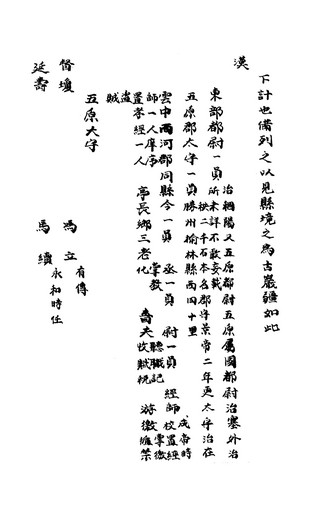 下計也備列之以見縣境之為古巖疆如此
漢
東部都尉一員治稒陽又五原郡都尉五原屬國都尉治塞外治
所未詳不敢妄載
五原郡太守一員秩二千石本名郡守景帝二年更太守治在
勝州榆林縣西四十里
雲中西河郡同縣令一員 丞一員 尉一員 經師成帝時
校置經
師一人庠序
置孝經一人 亭長鄉三老掌教
化 嗇夫聽職記
收賦稅 游徼掌徼
循禁
賊盜
五原太守
昝瓊 馬立有傳
延壽 馬續永和時任